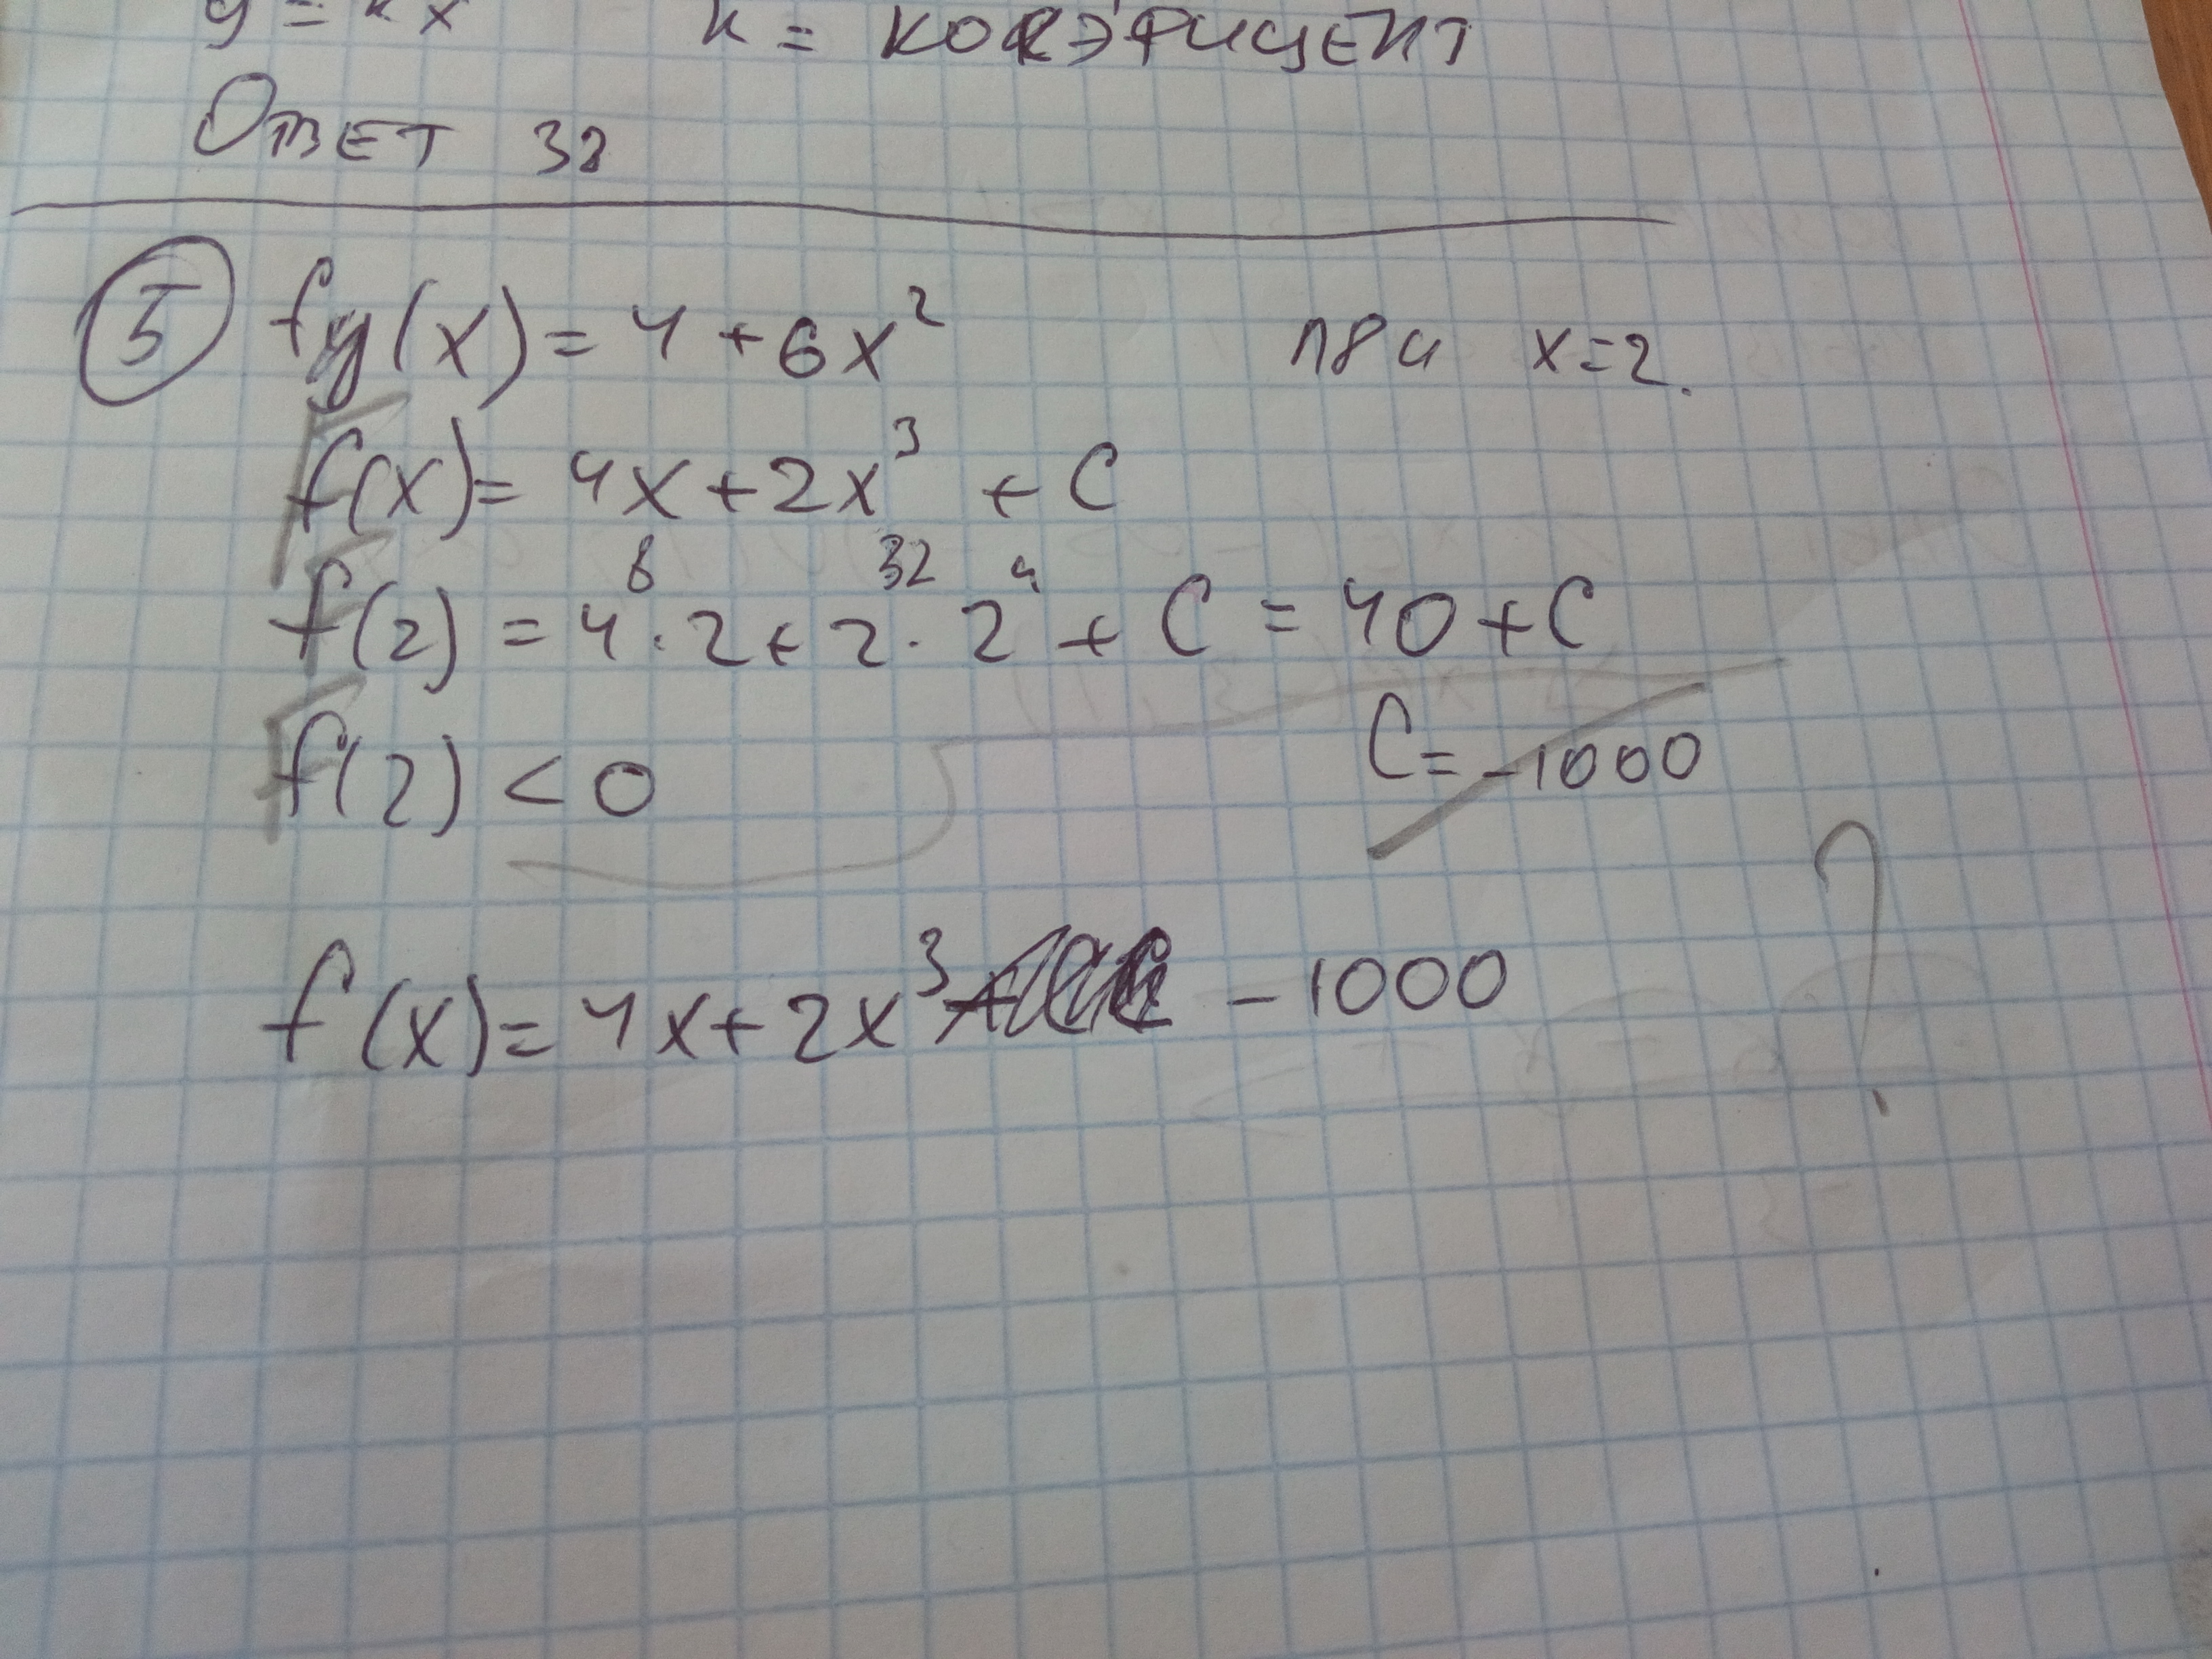 y = kx   k = коэффицент
Ответ 32
⑤ fy(x) = 4 + 6x²   при x=2.
F(x) = 4x + 2x³ + C
F(2) = 4 · 2 + 2 · 2⁴ + C = 40 + C
8 32
F(2) < 0   C = -1000
f(x) = 4x + 2x³ - 1000 ?